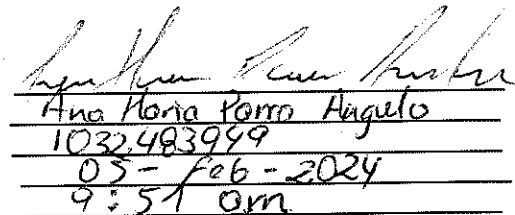 Ana Maria Parra Angulo
1032483949
05 - Feb - 2024
9:51 am